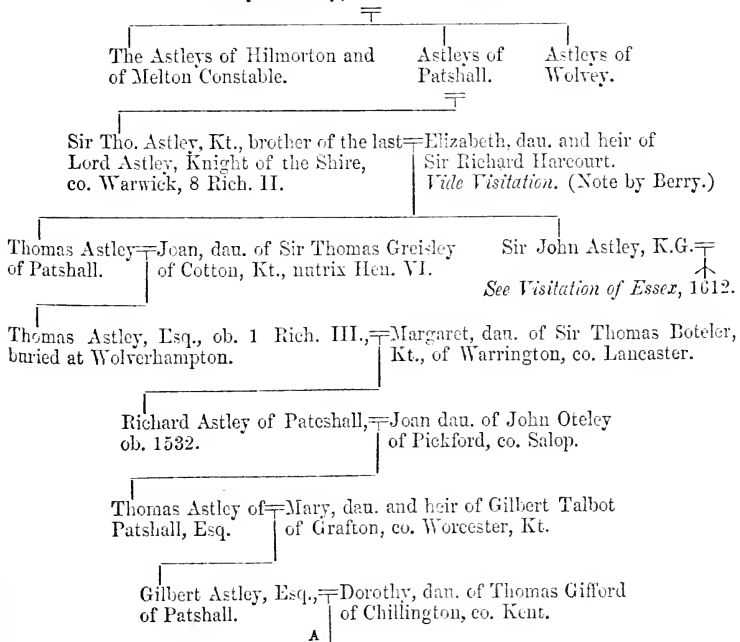 The Astleys of Hilmorton and
of Melton Constable.
Astleys of
Patshall.
Astleys of
Wolvey.
Sir Tho. Astley, Kt., brother of the last
Lord Astley, Knight of the Shire,
co. Warwick, 8 Rich. II.
Elizabeth, dau. and heir of
Sir Richard Harcourt.
Vide Visitation. (Note by Berry.)
Thomas Astley
of Patshall.
Joan, dau. of Sir Thomas Greisley
of Cotton, Kt., nutrix Hen. VI.
Sir John Astley, K.G.
See Visitation of Essex, 1612.
Thomas Astley, Esq., ob. 1 Rich. III.,
buried at Wolverhampton.
Margaret, dau. of Sir Thomas Boteler,
Kt., of Warrington, co. Lancaster.
Richard Astley of Pateshall,
ob. 1532.
Joan dau. of John Oteley
of Pickford, co. Salop.
Thomas Astley of
Patshall, Esq.
Mary, dau. and heir of Gilbert Talbot
of Grafton, co. Worcester, Kt.
Gilbert Astley, Esq.,
of Patshall.
Dorothy, dau. of Thomas Gifford
of Chillington, co. Kent.
A